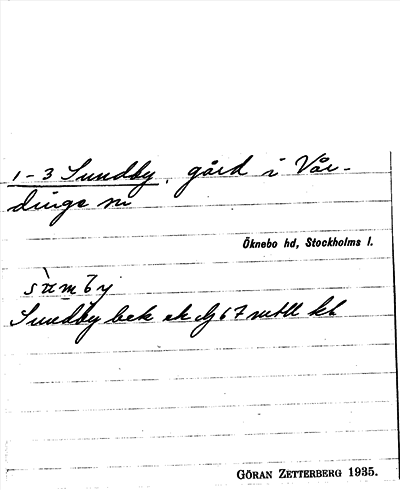 1-3 Sundby, gård i Vår-
dinge sn
Öknebo hd, Stockholms l.
sùmby
Sundby bek ek
67 mtll kb
GÖRAN ZETTERBERG 1935.